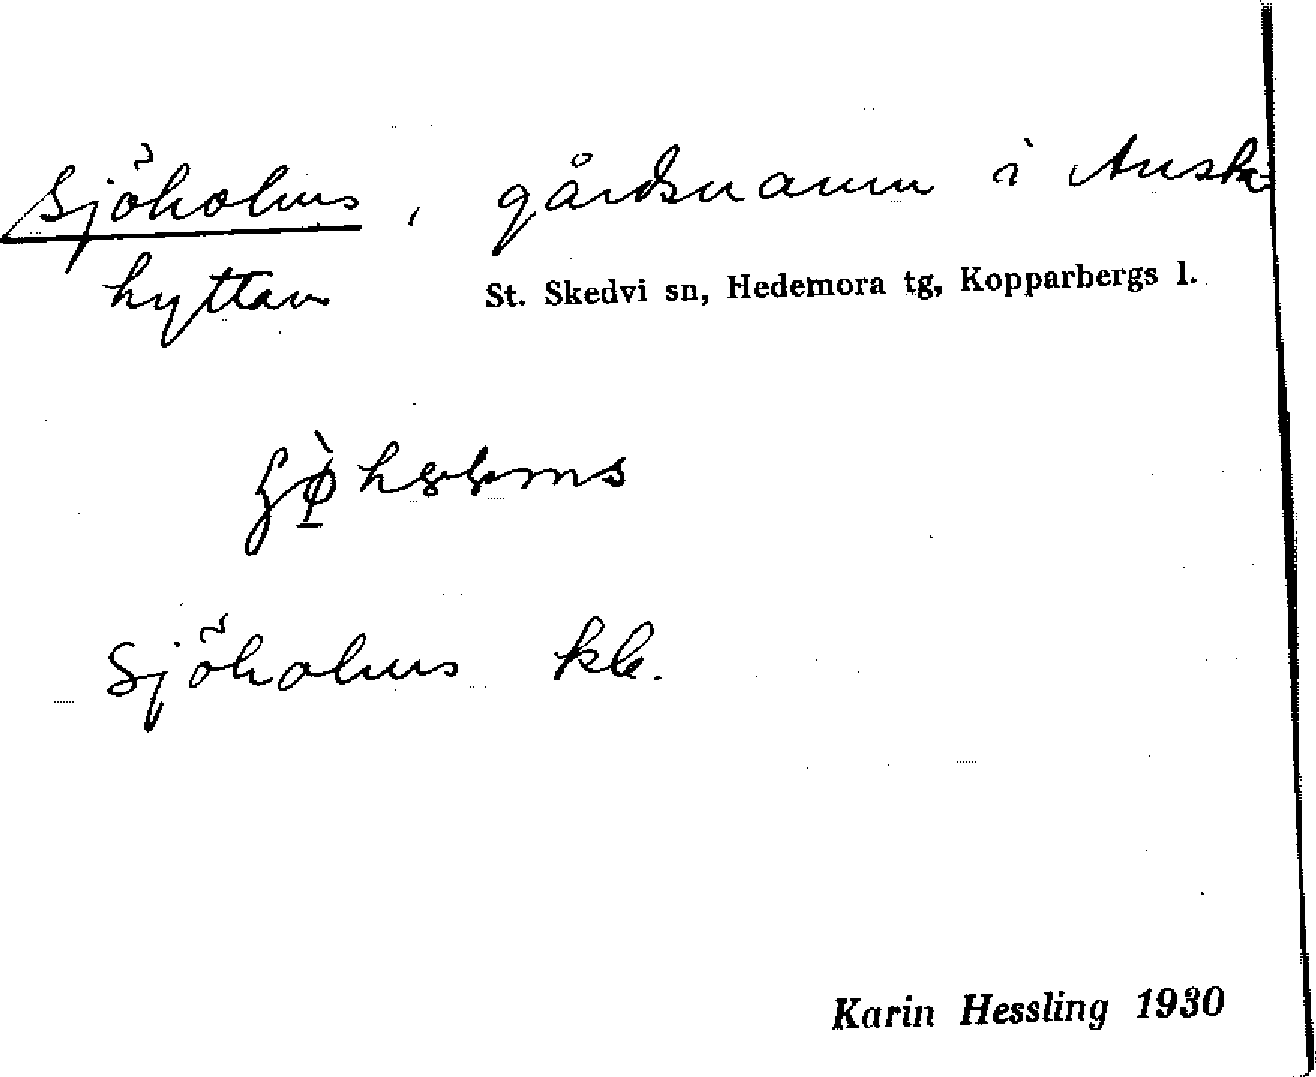 Sjöholms, gårdsnamn i Ansk-
hyttan St. Skedvi sn, Hedemora tg, Kopparbergs l.
Sjöholms kb.
Karin Hessling 1930